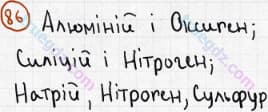 86 Алюміній і Оксиген;
Силіцій і Нітроген;
Натрій, Нітроген, Сульфур